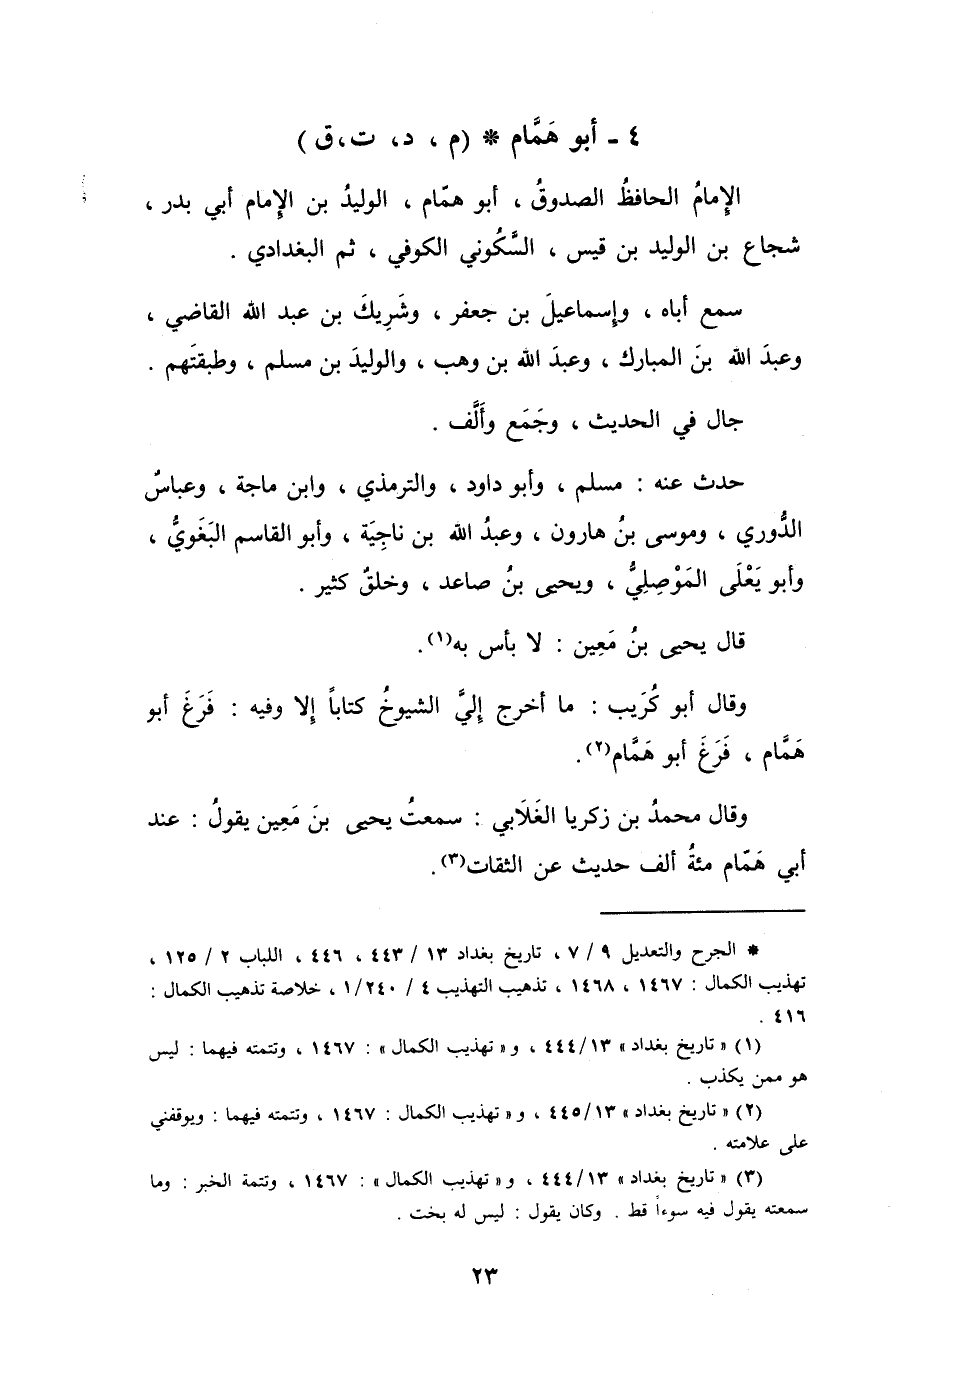 ٤ ـ أبو هَمَّام * (م ، د، ت،ق )
الإِمامُ الحافظُ الصدوقُ ، أبو همّام ، الوليدُ بن الإِمام أبي بدر ،
شجاع بن الوليد بن قيس ، السَّكُوني الكوفي ، ثم البغدادي .
سمع أباه ، وإسماعيلَ بن جعفر ، وشَرِيكَ بن عبد الله القاضي ،
وعبدَ الله بنَ المبارك ، وعبدَ الله بن وهب ، والوليدَ بن مسلم ، وطبقتَهم .
جال في الحديث ، وجَمَع وأَلَّف .
حدث عنه : مسلم ، وأبو داود ، والترمذي ، وابن ماجة ، وعباسٌ
الدُّوري ، وموسى بنُ هارون ، وعبدُ الله بن ناجِيَة ، وأبو القاسم البَغَويُّ ،
وأبو يَعْلَى المَوْصِلِيُّ ، ويحيى بنُ صاعد ، وخلقٌ كثير .
قال يحيى بنُ مَعِين : لا بأس به(١).
وقال أبو كُرَيب : ما أخرج إليَّ الشيوخُ كتاباً إلا وفيه : فَرَغَ أبو
هَمَّام ، فَرَغَ أبو هَمَّام(٢).
وقال محمدُ بن زكريا الغَلَابي : سمعتُ يحيى بنَ مَعِين يقولُ : عند
أبي هَمّام مئةُ ألف حديث عن الثقات(٣).
* الجرح والتعديل ٩ / ٧ ، تاريخ بغداد ١٣ / ٤٤٣ ، ٤٤٦ ، اللباب ٢ / ١٢٥ ،
تهذيب الكمال : ١٤٦٧ ، ١٤٦٨ ، تذهيب التهذيب ٤ / ٢٤٠ /١ ، خلاصة تذهيب الكمال :
٤١٦ .
(١) « تاريخ بغداد » ٤٤٤/١٣ ، و« تهذيب الكمال » : ١٤٦٧ ، وتتمته فيهما : ليس
هو ممن يكذب .
(٢) « تاريخ بغداد » ٤٤٥/١٣ ، و« تهذيب الكمال : ١٤٦٧ ، وتتمته فيهما : ويوقفني
على علامته .
(٣) « تاريخ بغداد » ٤٤٤/١٣ ، و« تهذيب الكمال » : ١٤٦٧ ، وتتمة الخبر : وما
سمعته يقول فيه سوءاً قط . وكان يقول : ليس له بخت .
٢٣